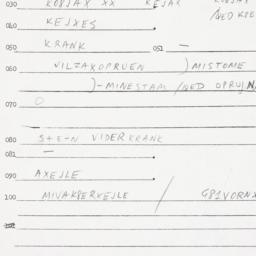 030 KOBJAX XX KEJAK
040 KEJXES
050 KRANK 051 —
060 VILZAXOPRUEN ) MISTOME
)-MINESTAM /NED OPRUJN
070 O
080 S+E-N VIDERKRANK
081 —
090 AXEJLE
100 MINAKBERKEJLE / G81VORNX